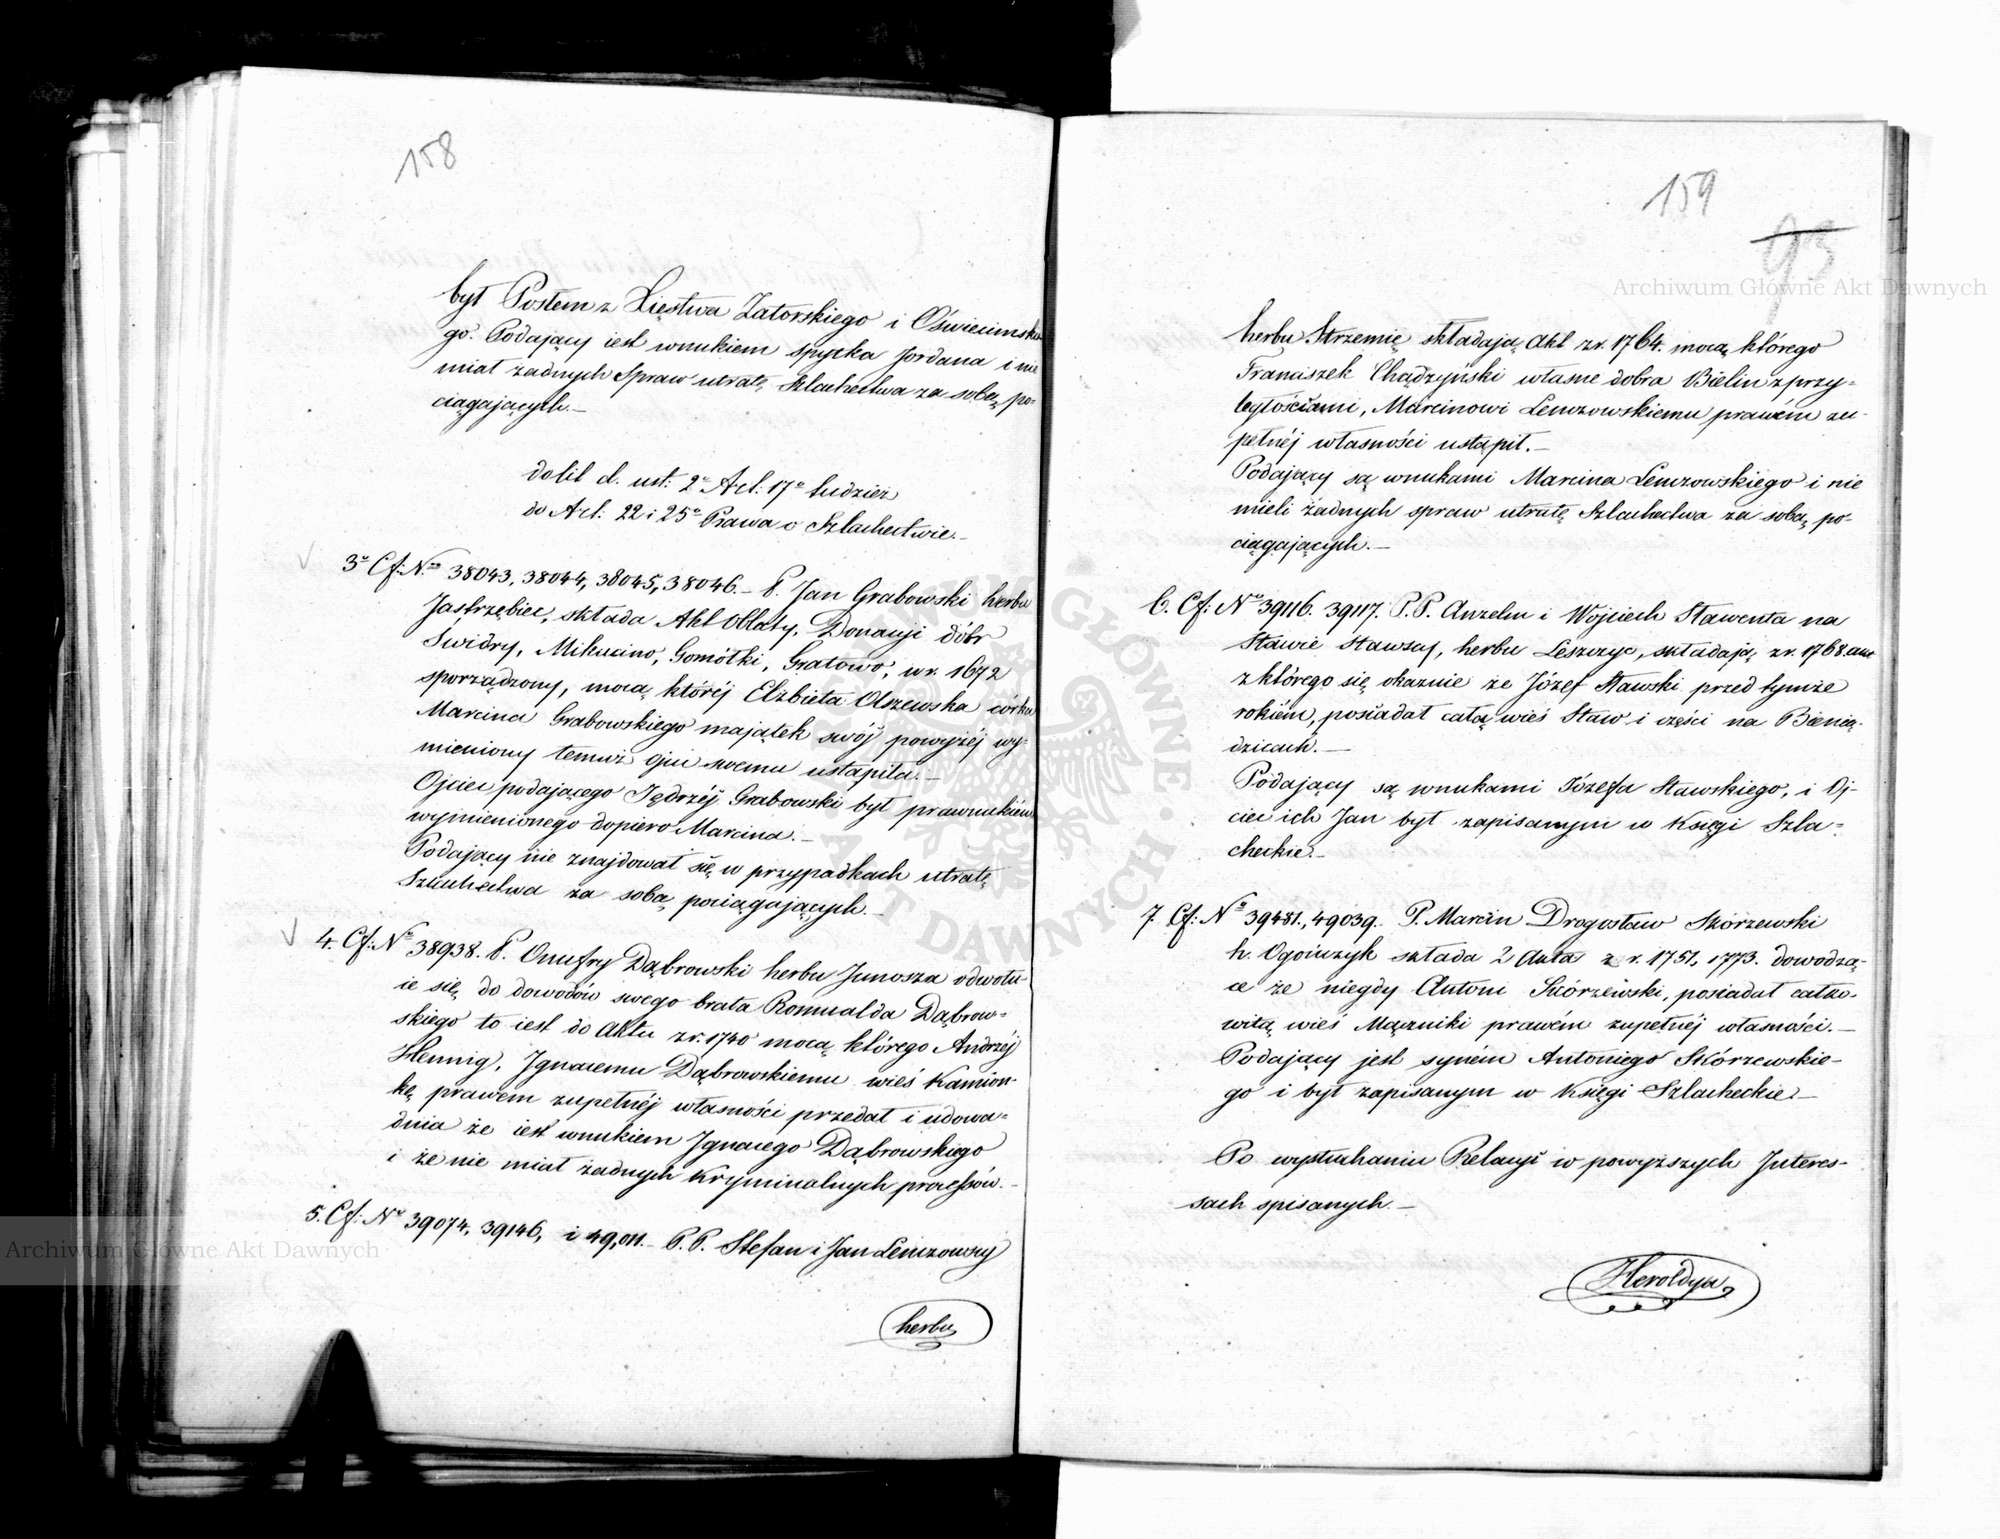 158
był Posłem z Xięstwa Zatorskiego i Oświecimskie
go. Podający iest wnukiem Spytka Jordana i nie
miał żadnych Spraw utratę Szlachectwa za sobą po-
ciągających.—
do lit d. ust: 2° Art: 17° tudzież
do Art: 22 i 25° Prawa o Szlachectwie.—
3° Cf: No 38043, 38044, 38045, 38046.— P. Jan Grabowski herbu
Jastrzębiec, składa Akt Oblaty, Donacyi dóbr
Świdry, Mikucino, Gomółki, Gratowo, w r. 1672
sporządzony, mocą któréj Elżbieta Olszewska córka
Marcina Grabowskiego majątek swój powyżéj wy-
mieniony temuż ojcu swemu ustąpiła.—
Ojciec podającego Jędrzéj Grabowski był prawnukiém
wymienionego dopiero Marcina.—
Podający nie znajdował się w przypadkach utratę
Szlachectwa za sobą pociągających.—
4. Cf: No 38938. P. Onufry Dąbrowski herbu Junosza odwołu-
ie się do dowodów swego brata Romualda Dąbrow-
skiego to iest do Aktu z r. 1740 mocą którego Andrzéj
Hennig, Ignacemu Dąbrowskiemu wieś Kamion-
kę prawem zupełnéj własności przedał i udowa-
dnia że iest wnukiem Ignacego Dąbrowskiego
i że nie miał żadnych Kryminalnych processów.—
5. Cf: No 39074, 39146, i 49,011.— P. P. Stefan i Jan Lenczowscy
herbu
159
93
herbu Strzemię składają Akt z r. 1764. mocą którego
Franciszek Chądzyński własne dobra Bielin z przy-
ległościami, Marcinowi Lenczowskiemu prawém zu-
pełnéj własności ustąpił.—
Podający są wnukami Marcina Lenczowskiego i nie
mieli żadnych spraw utratę Szlachectwa za sobą po-
ciągających.—
6. Cf: No 39116. 39117. P. P. Anzelm i Wojciech Stawenta na
Stawie Stawscy, herbu Leszczyc, składają z r. 1768. akt
z którego się okazuie że Józef Stawski przed tymże
rokiém, posiadał całą wieś Staw i części na Bienią-
dzicach.—
Podający są wnukami Józefa Stawskiego, i Oj-
ciec ich Jan był zapisanym w Księgi Szla-
checkie.—
7. Cf: No 39481., 49039. P. Marcin Drogosław Skórzewski
h. Ogończyk składa 2 Akta z r. 1751, 1773. dowodzą-
ce że niegdy Antoni Skórzewski, posiadał całko-
witą wieś Mączniki prawém zupełnéj własności.—
Podający jest syném Antoniego Skórzewskie-
go i był zapisanym w Księgi Szlacheckie.—
Po wysłuchaniu Relacyi w powyższych Interes-
sach spisanych.—
Heroldya
Archiwum Główne Akt Dawnych
Archiwum Główne Akt Dawnych